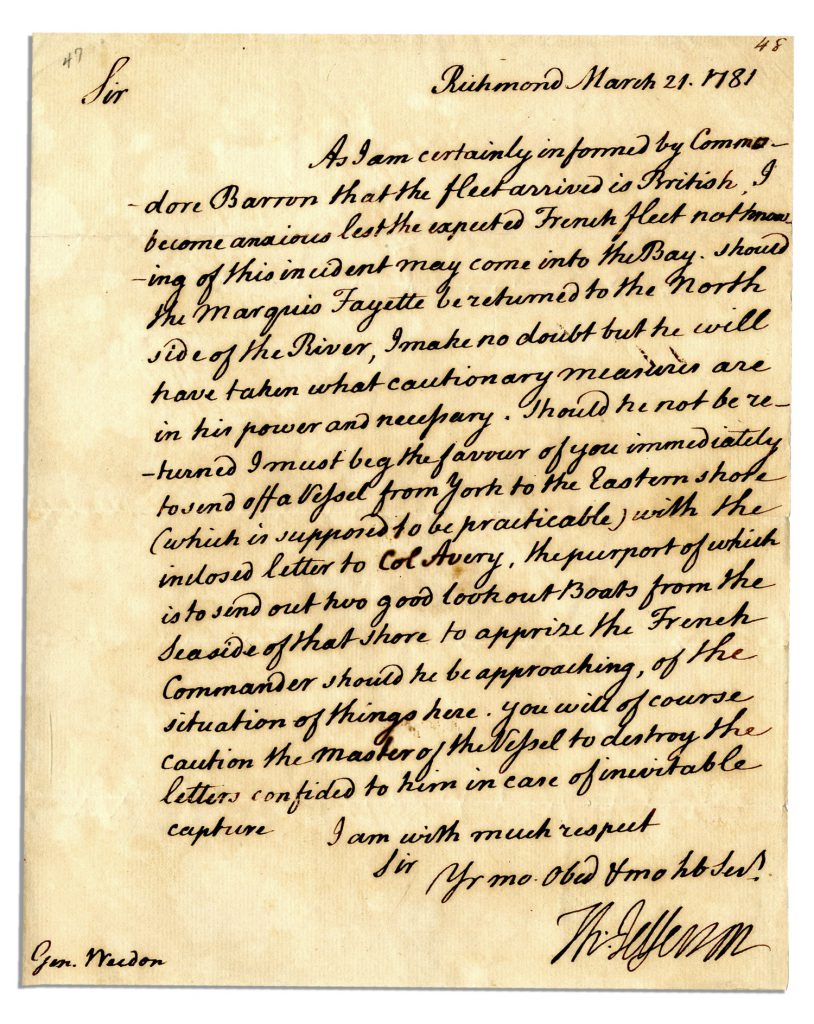 47
48
Sir
Richmond March 21. 1781
As I am certainly informed by Commo-
-dore Barron that the fleet arrived is British, I
become anxious lest the expected French fleet not know-
-ing of this incident may come into the Bay. should
the Marquis Fayette be returned to the North
side of the River, I make no doubt but he will
have taken what cautionary measures are
in his power and necessary. Should he not be re-
-turned I must beg the favour of you immediately
to send off a Vessel from York to the Eastern shore
(which is supposed to be practicable) with the
inclosed letter to Col Avery, the purport of which
is to send out two good lookout Boats from the
Seaside of that shore to apprize the French
Commander should he be approaching, of the
situation of things here. you will of course
caution the Master of the Vessel to destroy the
letters confided to him in case of inevitable
capture
I am with much respect
Sir
Yr mo. Obed & mo hb Servt.
Th: Jefferson
Gen. Weedon